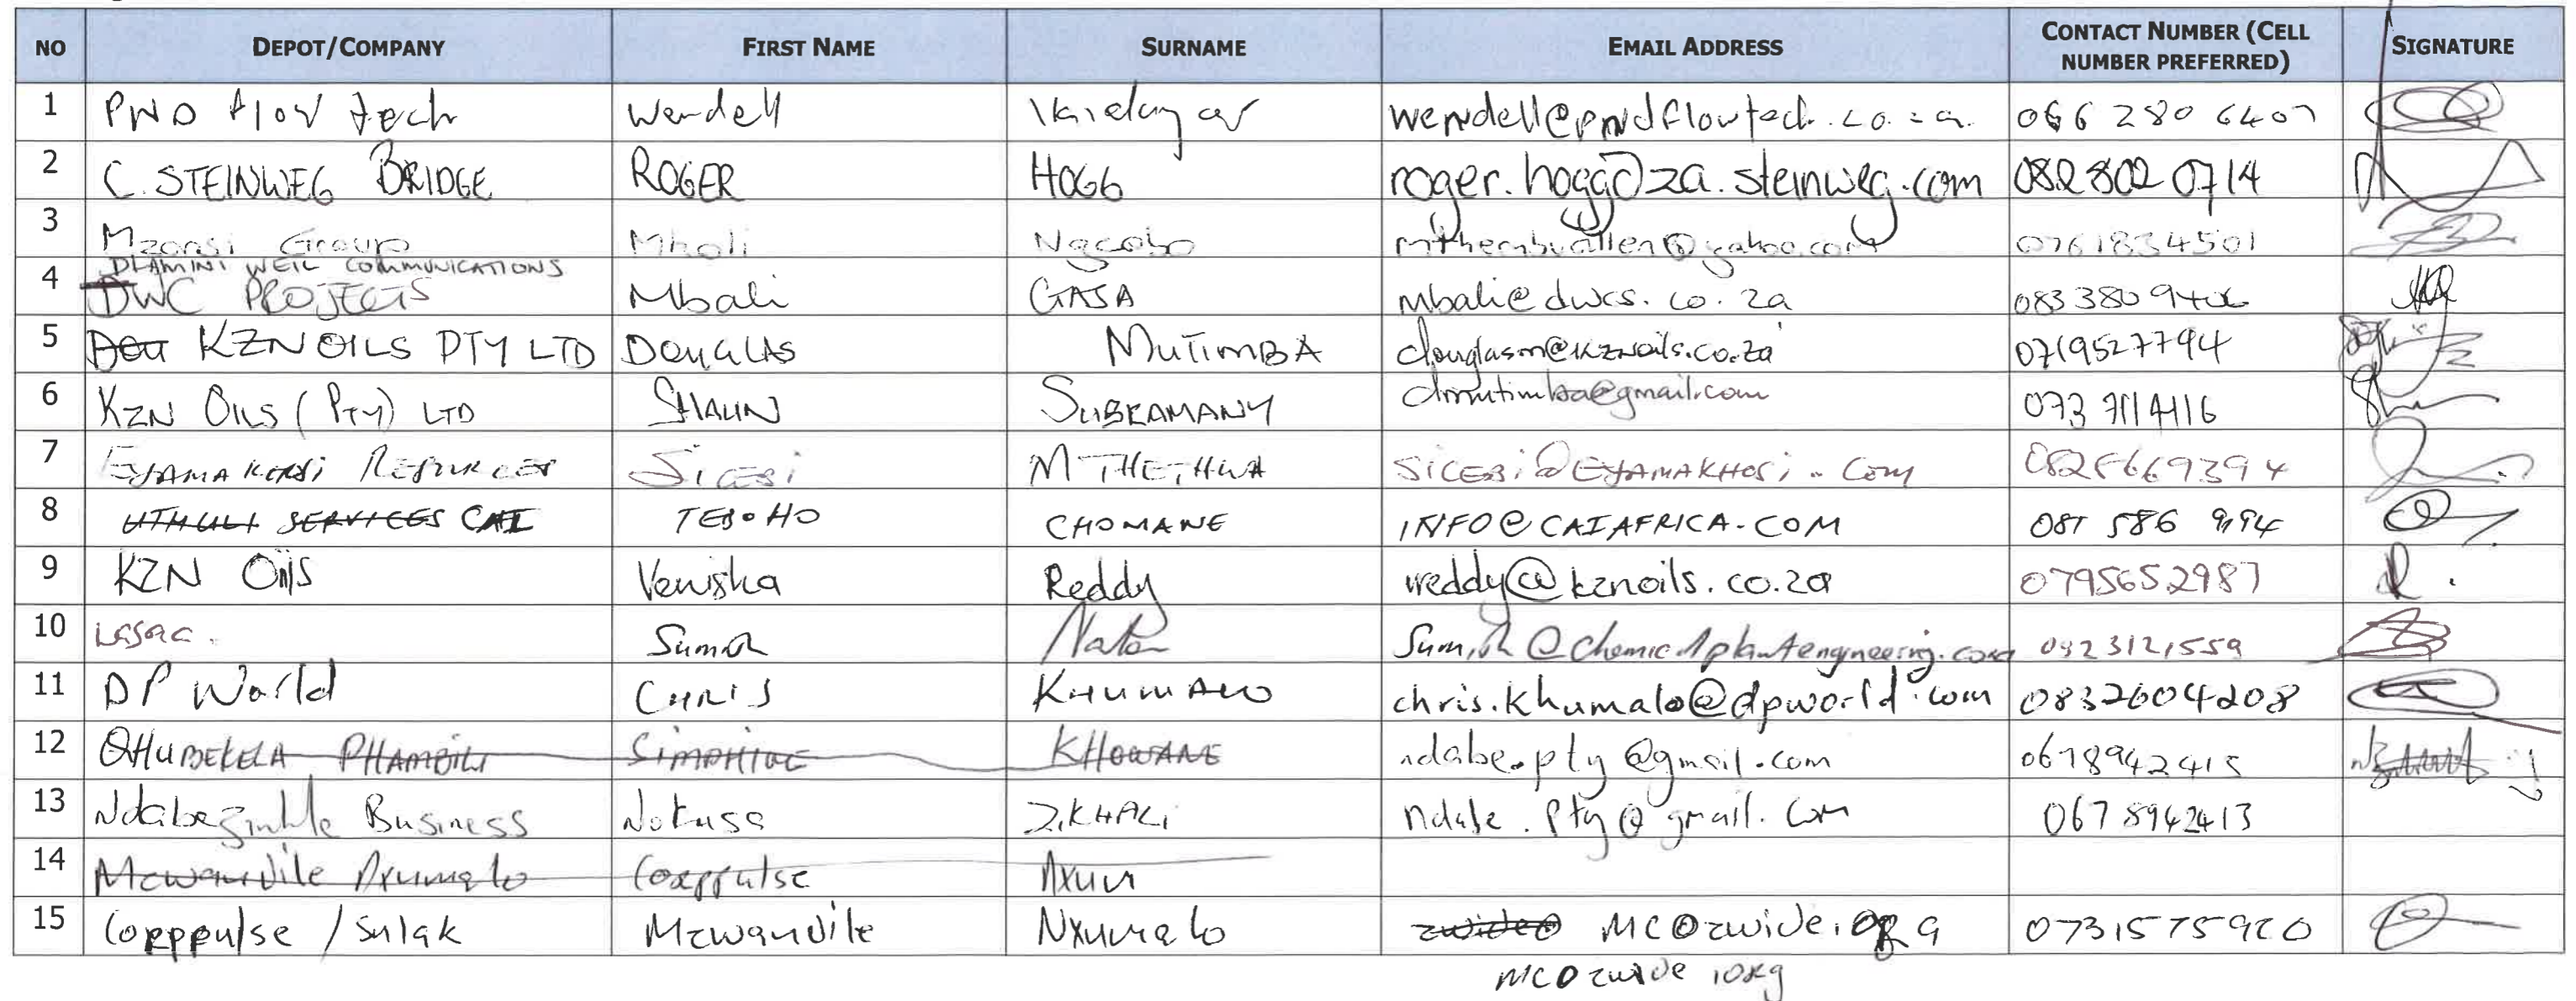 NO DEPOT/COMPANY FIRST NAME SURNAME EMAIL ADDRESS CONTACT NUMBER (CELL NUMBER PREFERRED) SIGNATURE
1 PND flow tech Wendell wendell@pndflowtech.co.za. 066 280 6407
2 C. STEINWEG BRIDGE ROGER HOGG roger.hogg@za.steinweg.com 082 802 0714
3 Mzansi Group Mbali Ngcobo mthembuallen@yahoo.com 0761834501
DLAMINI WEIL COMMUNICATIONS
4 DWC PROJECTS Mbali GASA mbali@dwcs.co.za 083 380 9406
5 KZN OILS PTY LTD DOUGLAS MUTIMBA douglasm@kznoils.co.za 0719527794
6 KZN OILS (PTY) LTD SHAUN SUBRAMANY dmutimba@gmail.com 073 7114116
7 EYAMAKHOSI RESOURCES SICEBI MTHETHWA SICEBI@EYAMAKHOSI.COM
8 UTHULI SERVICES CAI TEBOHO CHOMANE INFO@CAIAFRICA.COM
9 KZN Oils Venisha Reddy vreddy@kznoils.co.za 0795652987
10 chemicalplantengineering.com
11 DP World CHRIS KHUMALO chris.khumalo@dpworld.com 0832604208
12 QHUBEKELA PHAMBILI SIMPHIWE KHOWANE ndabe.pty@gmail.com 0678942415
13 Ndabezinhle Business ZIKHALI ndabe.pty@gmail.com 0678942413
14 Mzwandile Nxumalo Corppulse Nxum
15 Corppulse / Sulak Mzwandile Nxumalo 0731575920